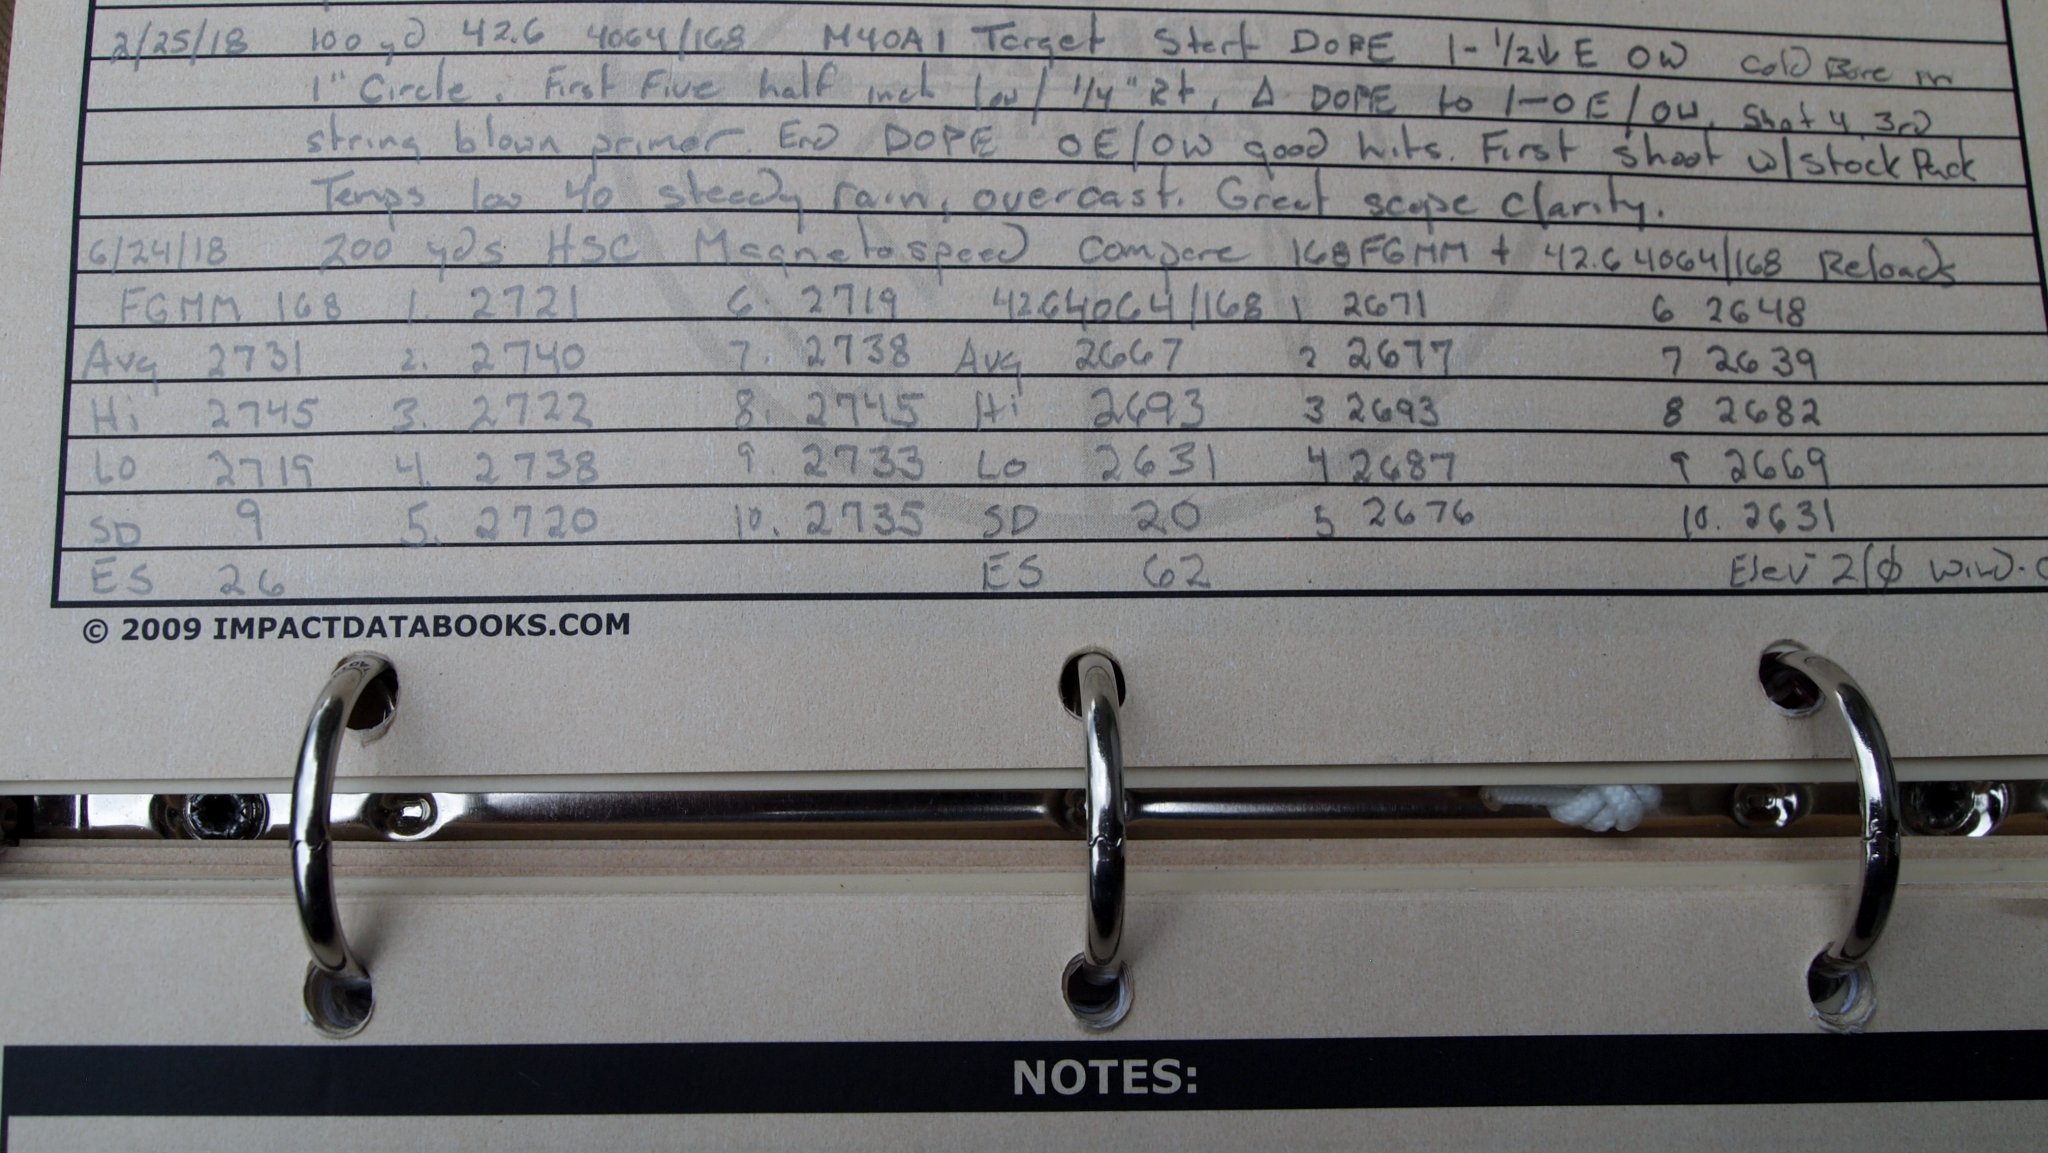 2/25/18 100 yd 42.6 4064/168 M40A1 Target Start DOPE 1-1/2↓ E 0W Cold Bore in
1" Circle. First Five half inch low/ 1/4" Rt, Δ DOPE to 1-0E/0W. Shot 4, 3rd
string blown primer. End DOPE 0E/0W good hits. First shoot w/Stock Pack
Temps low 40 steady rain, overcast. Great scope clarity.
6/24/18 200 yds HSC Magnetospeed Compare 168FGMM + 42.6 4064/168 Reloads
FGMM 168 1. 2721 6. 2719 42.6 4064/168 1 2671 6 2648
Avg 2731 2. 2740 7. 2738 Avg 2667 2 2677 7 2639
Hi 2745 3. 2722 8. 2745 Hi 2693 3 2693 8 2682
LO 2719 4. 2738 9. 2733 LO 2631 4 2687 9 2669
SD 9 5. 2720 10. 2735 SD 20 5 2676 10. 2631
ES 26 ES 62 Elev 2/Ø Wind.
© 2009 IMPACTDATABOOKS.COM
NOTES: